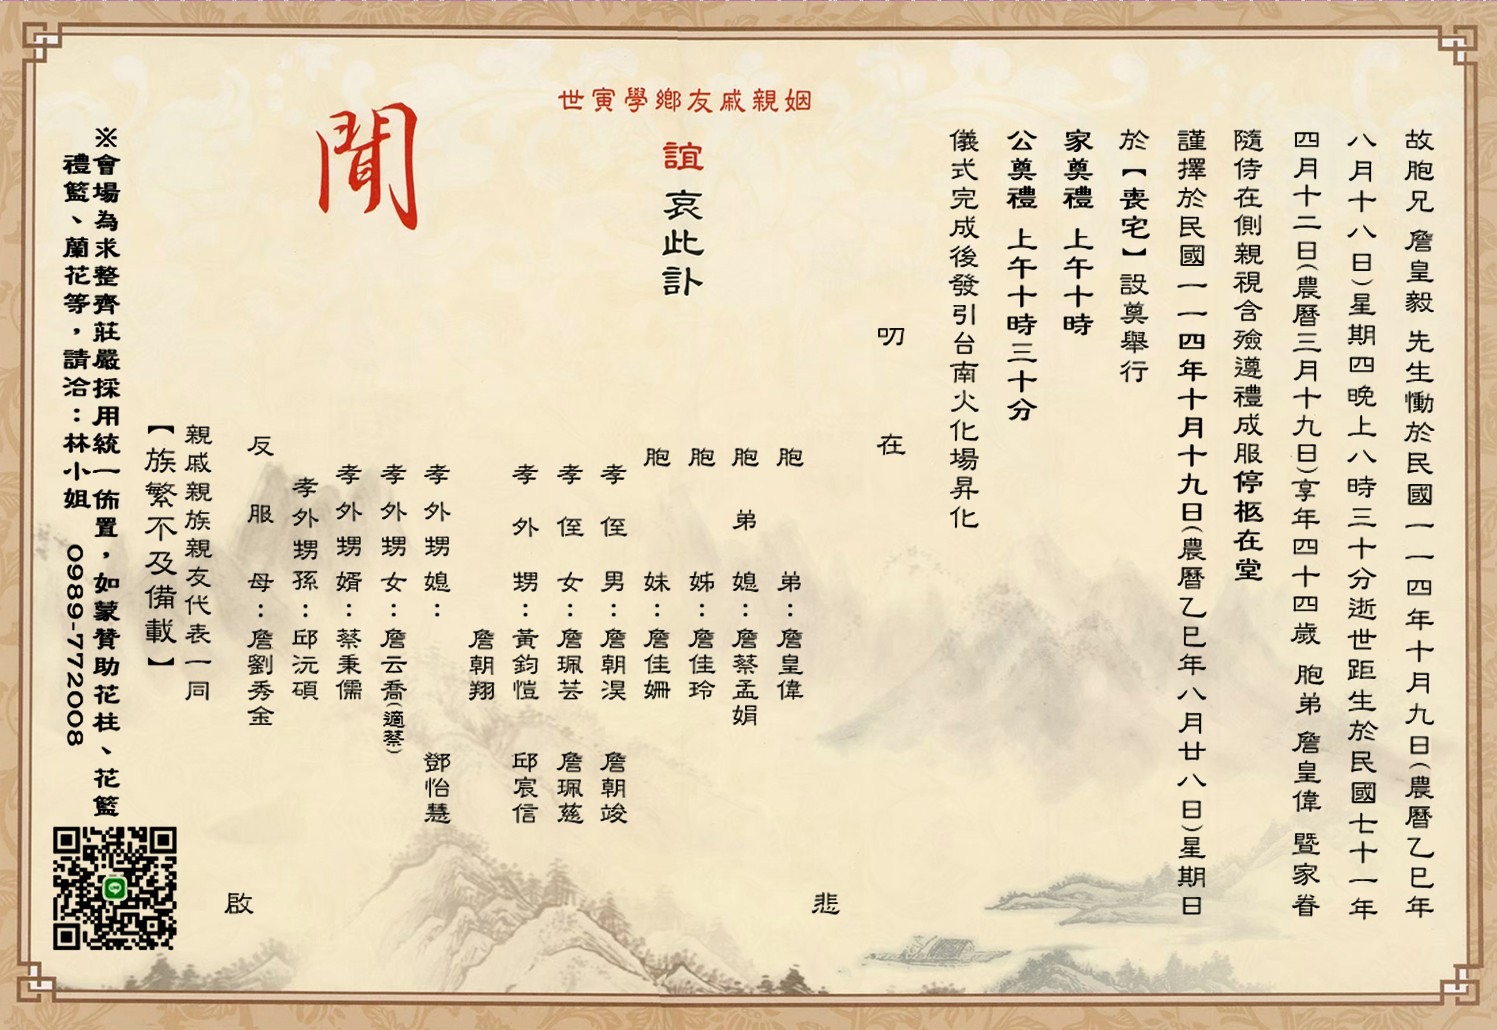 故胞兄 詹皇毅 先生慟於民國一一四年十月九日(農曆乙巳年
八月十八日)星期四晚上八時三十分逝世距生於民國七十一年
四月十二日(農曆三月十九日)享年四十四歲 胞弟 詹皇偉 暨家眷
隨侍在側親視含殮遵禮成服停柩在堂
謹擇於民國一一四年十月十九日(農曆乙巳年八月廿八日)星期日
於【喪宅】設奠舉行
家奠禮 上午十時
公奠禮 上午十時三十分
儀式完成後發引台南火化場昇化
叨 在
姻親戚友鄉學寅世
誼 哀此訃
聞
悲
胞弟:詹皇偉
胞弟媳:詹蔡孟娟
胞姊:詹佳玲
胞妹:詹佳姍
孝侄男:詹朝淏 詹朝竣
孝侄女:詹珮芸 詹珮慈
孝外甥:黃鈞愷 邱宸信
詹朝翔
孝外甥媳: 鄧怡慧
孝外甥女:詹云喬(適蔡)
孝外甥婿:蔡秉儒
孝外甥孫:邱沅碩
反服母:詹劉秀金
啟
親戚親族親友代表一同
【族繁不及備載】
※會場為求整齊莊嚴採用統一佈置,如蒙贊助花柱、花籃
禮籃、蘭花等,請洽:林小姐 0989-772008